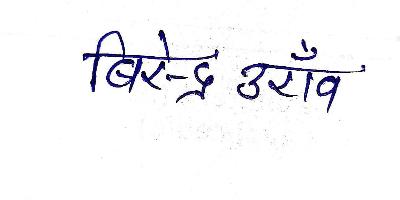 बिरेन्द्र उराँव